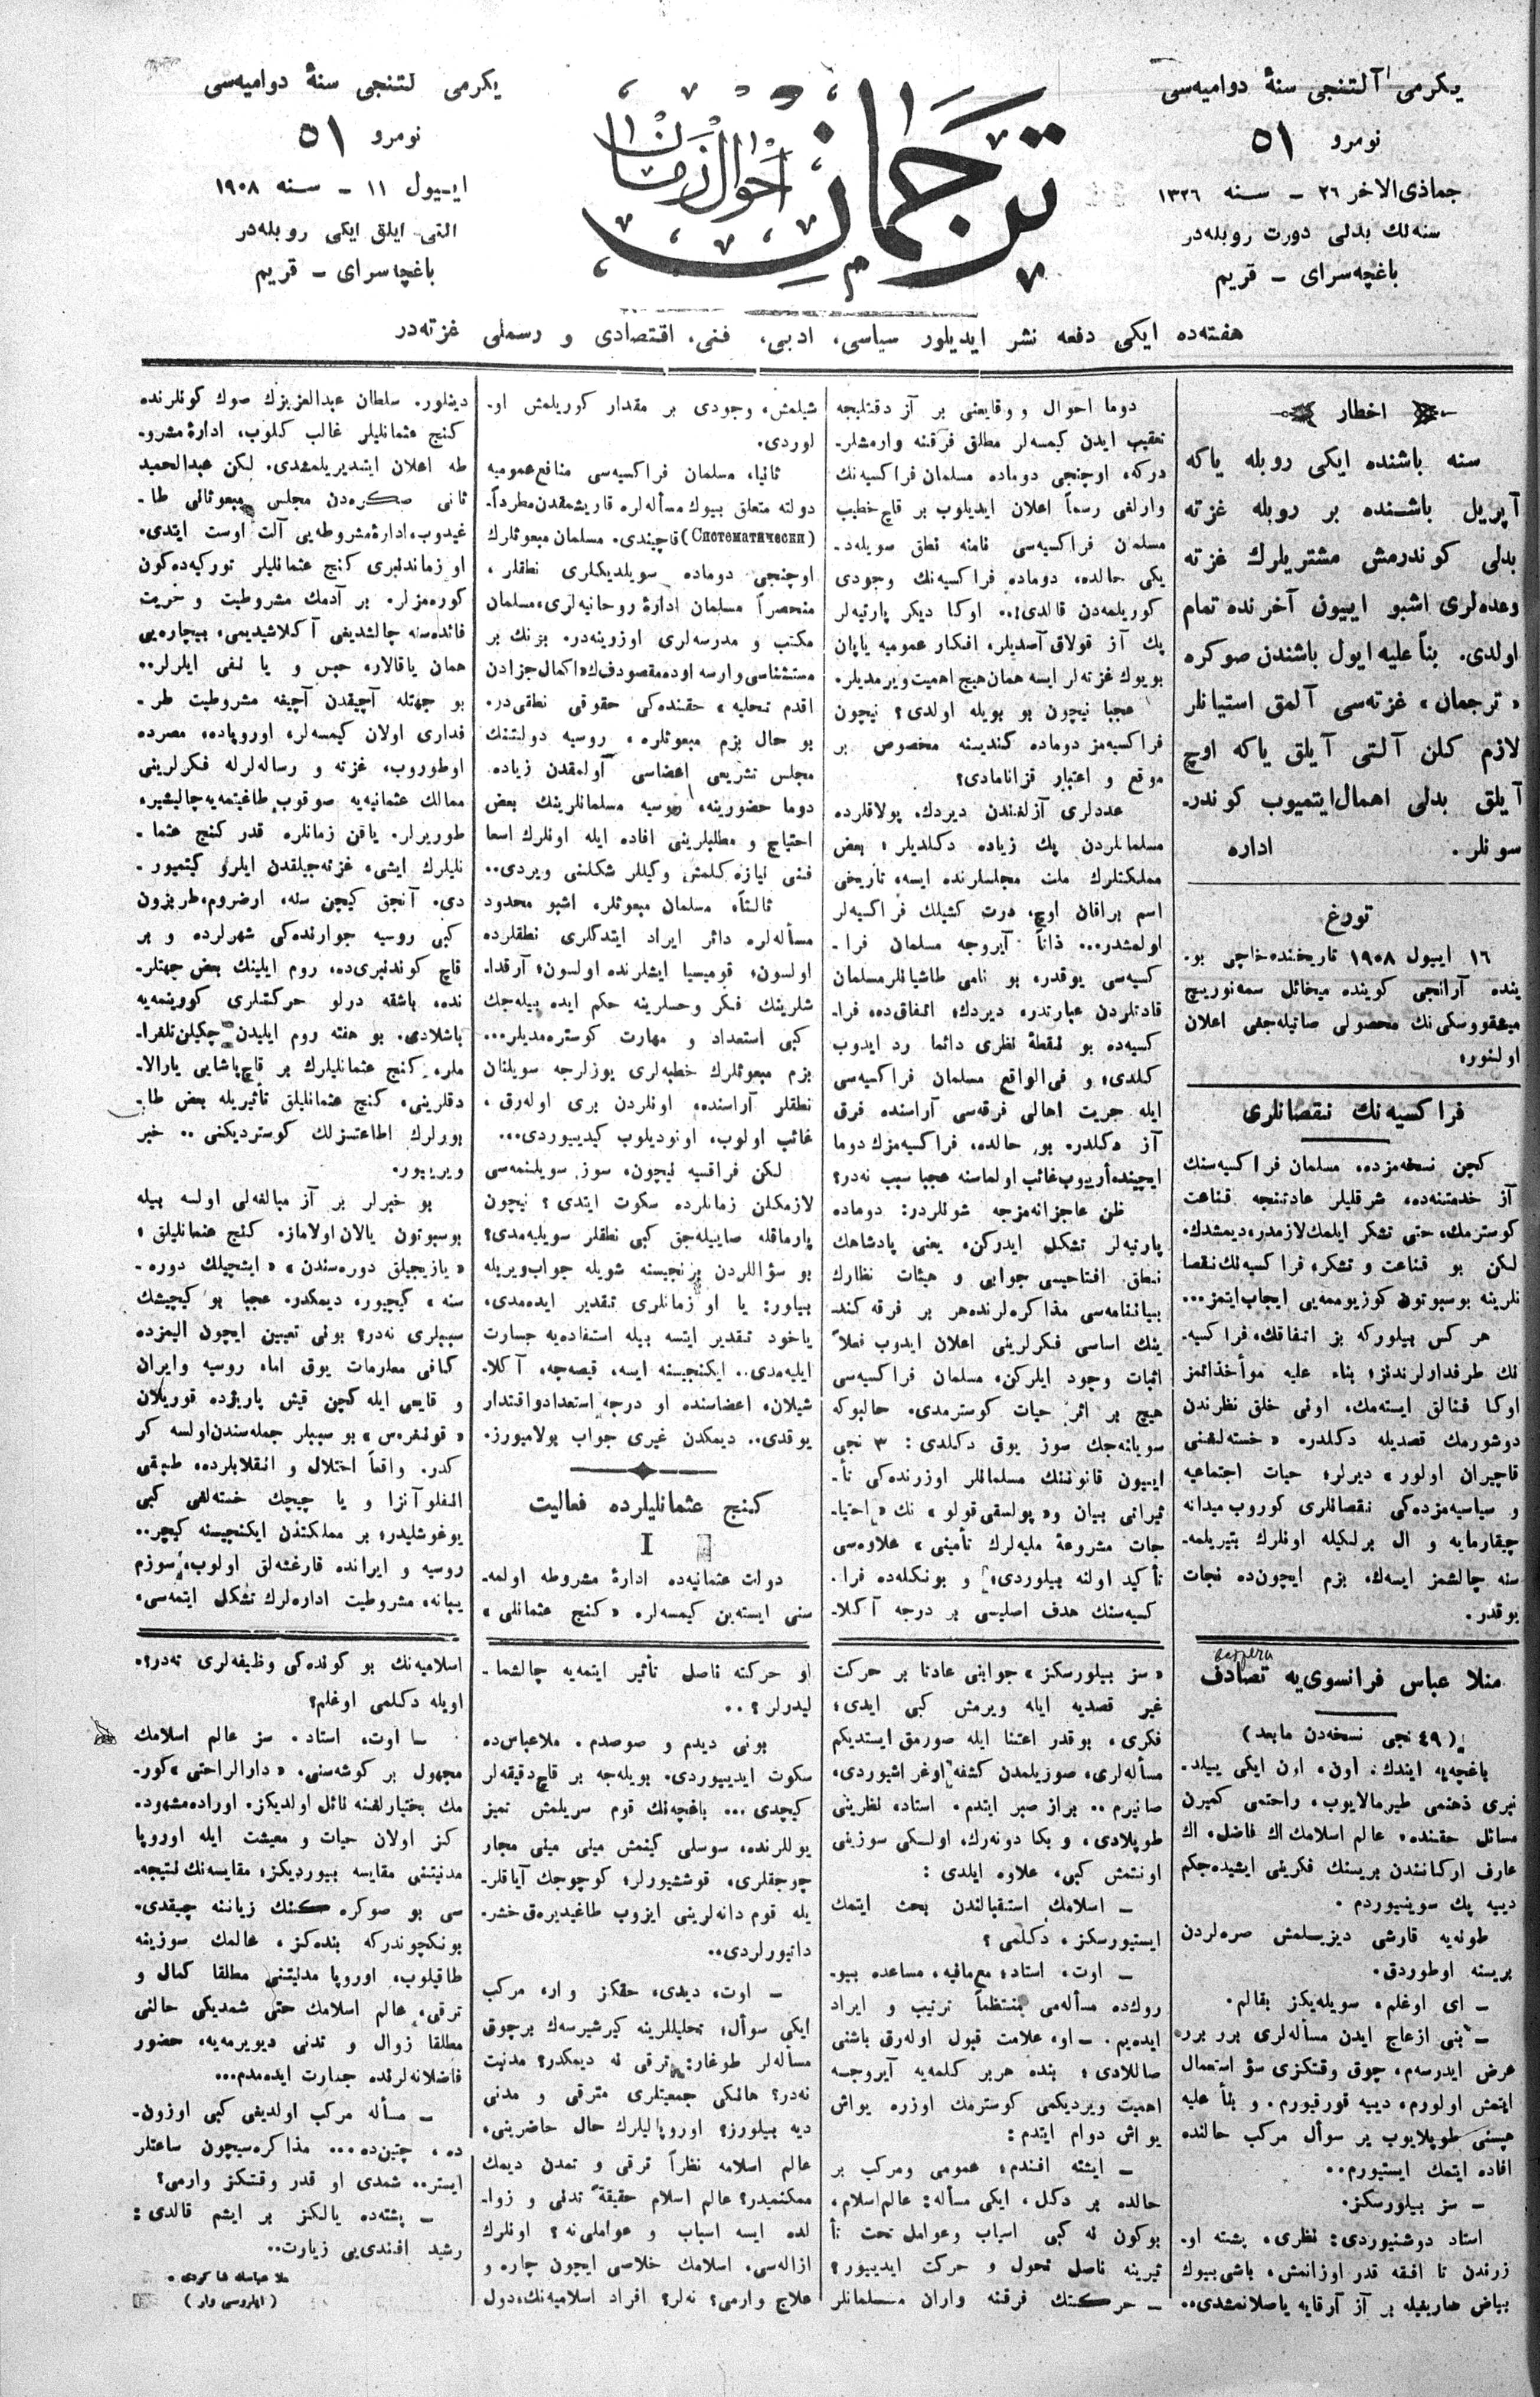 یكرمی آلتنجی سنهٔ دوامیه‌سی
نومرو ٥١
جماذی‌الاخر ٢٦ – سنه ١٣٢٦
سنه‌لك بدلی دورت روبله‌در
باغچه‌سرای – قریم
ترجمان
احوال زمان
یكرمی لتنجی سنهٔ دوامیه‌سی
نومرو ٥١
اییول ١١ – سنه ١٩٠٨
التی ایلق ایكی روبله‌در
باغچا سرای – قریم
هفته‌ده ایكی دفعه نشر ایدیلور سیاسی، ادبی، فنی، اقتصادی و رسملی غزته‌در
اخطار
سنه باشنده ایكی روبله یاكه
آپریل باشنده بر روبله غزته
بدلی كوندرمش مشتریلرك غزته
وعده‌لری اشبو اییون آخرنده تمام
اولدی. بناً علیه ایول باشندن صوكره
«ترجمان» غزته‌سی آلمق استیانلر
لازم كلن آلتی آیلق یاكه اوچ
آیلق بدلی اهمال ایتمیوب كوندر-
سونلر. اداره
تورغ
١٦ اییول ١٩٠٨ تاریخنده خاچی بو-
ینده آرانجی كوینده میخائل سمه‌نوریچ
میعقووسكی‌نك محصولی صاتیله‌جغی اعلان
اولنور،
فراكسیه‌نك نقصانلری
كچن نسخه‌مزده، مسلمان فراكسیه‌سنك
آز خدمتنه‌ده، شرقلیلر عادتنجه قناعت
كوسترمك، حتی تشكر ایلمك لازمدر، دیمشدك.
لكن بو قناعت و تشكر، فراكسیه‌نك نقصا
نلرینه بوسبوتون كوزیوممه‌یی ایجاب ایتمز...
هر كس بیلوركه بز اتفاقك، فراكسیه-
نك طرفداولرندنز؛ بناء علیه موأخذاتمز
اوكا فنالق ایسته‌مك، اونی خلق نظرندن
دوشورمك قصدیله دكلدر. «خسته‌لغنی
قاچیران اولور» دیرلر؛ حیات اجتماعیه
و سیاسیه‌مزده‌كی نقصانلری كوروب میدانه
چیقارمایه و ال برلكیله اونلرك بتیریلمه-
سنه چالشمز ایسه‌ك، بزم ایچون‌ده نجات
یوقدر.
دوما احوال و وقایعنی بر آز دقتلیجه
تعقیب ایدن كیمسه‌لر مطلق فرقنه وارمشلر-
دركه، اوچنجی دوماده مسلمان فراكسیه‌نك
وارلغی رسماً اعلان ایدیلوب بر قاچ خطیب
مسلمان فراكسیه‌سی نامنه نطق سویله‌د-
یكی حالده، دوماده فراكسیه‌نك وجودی
كوریلمه‌دن قالدی!.. اوكا دیكر پارتیه‌لر
پك آز قولاق آصدیلر، افكار عمومیه یاپان
بویوك غزته‌لر ایسه همان هیچ اهمیت ویرمدیلر.
عجبا نیچون بو بویله اولدی؟ نیچون
فراكسیه‌مز دوماده كندیسنه مخصوص بر
موقع و اعتبار قزانامادی؟
عددلری آزلغندن دیردك. پولاقلرده
مسلمانلردن پك زیاده دكلدیلر؛ بعض
مملكتلرك ملت مجلسلرنده ایسه، تاریخی
اسم براقان اوچ، درت كشیلك فراكسیه‌لر
اولمشدر... ذاتاً آیروجه مسلمان فرا-
كسیه‌سی یوقدر، بو نامی طاشیانلر مسلمان
قادتلردن عبارتدر، دیردك؛ اتفاق‌ده، فرا-
كسیه‌ده بو نقطهٔ نظری دائما رد ایدوب
كلدی؛ و فی‌الواقع مسلمان فراكسیه‌سی
ایله حریت اهالی فرقه‌سی آراسنده فرق
آز دكلدر. بو حالده، فراكسیه‌مزك دوما
ایچینده أریوب غائب اولماسنه عجبا سبب نه‌در؟
ظن عاجزانه‌مزجه شونلردر: دوماده
پارتیه‌لر تشكل ایدركن، یعنی پادشاهك
نطق افتتاحیسی جوابی و هیئات نظارك
بیاننامه‌سی مذاكره‌لرنده هر بر فرقه كند-
ینك اساسی فكرلرینی اعلان ایدوب فعلاً
اثبات وجود ایلركن، مسلمان فراكسیه‌سی
هیچ بر اثر حیات كوسترمدی. حالبوكه
سویلنه‌جك سوز یوق دكلدی: ٣ نجی
اییون قانوننك مسلمانلر اوزرنده‌كی تأ-
ثیراتی بیان و «پولسقی قولو» نك «احتیا-
جات مشروعهٔ ملیه‌لرك تأمینی» علاوه‌سی
تأكید اولنه بیلوردی؛ و بونكله‌ده فرا-
كسیه‌سنك هدف اصلیسی بر درجه آكلا-
شیلمش، وجودی بر مقدار كوریلمش او-
لوردی.
ثانیا، مسلمان فراكسیه‌سی منافع عمومیه
دولته متعلق بیوك مسأله‌لره قاریشمقدن مطرداً-
(Систематически) قاچیندی. مسلمان مبعوثلرك
اوچنجی دوماده سویلدیكلری نطقلر،
منحصراً مسلمان ادارهٔ روحانیه‌لری، مسلمان
مكتب و مدرسه‌لری اوزرینه‌در. بزنك بر
مستثناسی وارسه اوده مقصودف‌ك «اكمال جزادن
اقدم تخلیه» حقنده‌كی حقوقی نطقی‌در.
بو حال بزم مبعوثلره، روسیه دولتنك
مجلس تشریعی اعضاسی اولمقدن زیاده
دوما حضورینه، روسیه مسلمانلرینك بعض
احتیاج و مطلبلرینی افاده ایله اونلرك اسعا
فنی نیازه كلمش وكیللر شكلنی ویردی..
ثالثاً، مسلمان مبعوثلر، اشبو محدود
مسأله‌لره دائر ایراد ایتدكلری نطقلرده
اولسون؛ قومیسیا ایشلرنده اولسون؛ آرقدا-
شلرینك فكر و حسلرینه حكم ایده بیله‌جك
كبی استعداد و مهارت كوستره‌مدیلر...
بزم مبعوثلرك خطبه‌لری یوزلرجه سویلنان
نطقلر آراسنده، اونلردن بری اوله‌رق،
غائب اولوب، اونودیلوب كیدییوردی...
لكن فراقسیه نیچون، سوز سویلنمه‌سی
لازمكلن زمانلرده سكوت ایتدی؟ نیچون
پارماقله صاییله‌جق كبی نطقلر سویلیه‌مدی؟
بو سؤاللردن برنجیسنه شویله جواب ویریله
بیلور: یا او زمانلری تقدیر ایده‌مدی،
یاخود تقدیر ایتسه بیله استفاده‌یه جسارت
ایلیه‌مدی.. ایكنجیسنه ایسه، قیصه‌جه، آكلا-
شیلان، اعضاسنده او درجه استعداد و اقتدار
یوقدی.. دیمكدن غیری جواب بولامیورز.
كنج عثمانلیلرده فعالیت
I
دولت عثمانیه‌ده ادارهٔ مشروطه اولمه-
سنی ایسته‌ین كیمسه‌لره «كنج عثمانلی»
دینلور. سلطان عبدالعزیزك صوك كونلرنده
كنج عثمانلیلر غالب كلوب، ادارهٔ مشرو-
طه اعلان ایتدیریلمشدی. لكن عبدالحمید
ثانی صكره‌دن مجلس مبعوثانی طا-
غیدوب، ادارهٔ مشروطه‌یی آلت اوست ایتدی.
او زماندنبری كنج عثمانلیلر توركیه‌ده كون
كوره‌مزلر. بر آدمك مشروطیت و حریت
فائده‌سنه چالشدیغی آكلاشیدیمی، بیچاره‌یی
همان یاقالار، حبس و یا نفی ایلرلر..
بو جهتله آچیقدن آچیغه مشروطیت طر-
فداری اولان كیمسه‌لر، اوروپاده، مصرده
اوطوروب، غزته و رساله‌لرله فكرلرینی
ممالك عثمانیه‌یه صوقوب طاغیتمه‌یه چالیشیر،
طوریرلر. یاقن زمانلره قدر كنج عثما-
نلیلرك ایشی، غزته‌جیلقدن ایلری كیتمیور-
دی. آنجق كچن سنه، ارضروم، طربزون
كبی روسیه جوارنده‌كی شهرلرده و بر
قاچ كوندنبری‌ده، روم ایلینك بعض جهتلر-
نده، باشقه درلو حركتلری كورینمه‌یه
باشلادی. بو هفته روم ایلیدن چكیلن تلغرا-
ملر، كنج عثمانلیلرك بر قاچ پاشایی یارالا-
دقلرینی، كنج عثمانلیلق تأثیریله بعض طا-
بورلرك اطاعتسزلك كوستردیكنی .. خبر
ویرییور.
بو خبرلر بر آز مبالغه‌لی اولسه بیله
بوسبوتون یالان اولاماز. كنج عثمانلیلق؛
«یازیجیلق دوره‌سندن» «ایشچیلك دوره-
سنه» كیچیور، دیمكدر. عجبا بو كیچیشك
سببلری نه‌در؟ بونی تعیین ایچون الیمزده
كافی معلومات یوق اما، روسیه وایران
وقایعی ایله كچن قیش پاریژده قوریلان
«قونغره‌س» بو سببلر جمله‌سندن اولسه كر
كدر. واقعاً اختلال و انقلابلرده، طبقی
انفلوآنزا و یا چیچك خسته‌لغی كبی
یوغوشلیدر؛ بر مملكتدن ایكنجیسنه كیچر..
روسیه و ایرانده قارغشه‌لق اولوب، سوزم
یبانه، مشروطیت اداره‌لرك تشكل ایتمه‌سی،
منلا عباس فرانسوی‌یه تصادف
(٤٩ نجی نسخه‌دن مابعد)
باغچه‌یه ایندك. اون، اون ایكی ییلد-
نبری ذهنمی طیرمالایوب، راحتمی كمیرن
مسائل حقنده، عالم اسلامك اك فاضل، اك
عارف اركانندن بریسنك فكرینی ایشیده‌جكم
دییه پك سوینیوردم.
طونه‌یه قارشی دیزیسلمش صره‌لردن
بریسنه اوطوردق.
– ای اوغلم، سویله‌یكز بقالم.
– بنی ازعاج ایدن مسأله‌لری برر برر
عرض ایدرسه‌م، چوق وقتكزی سؤ استعمال
ایتمش اولورم، دییه قورقیورم. و بنأ علیه
هپسنی طوپلایوب بر سوأل مركب حالنده
افاده ایتمك ایستیورم..
– سز بیلورسكز.
استاد دوشنیوردی: نظری، پشته او-
زرندن تا افقه قدر اوزانمش، باشی بیوك
بیاض صاریغیله بر آز آرقایه یاصلانمشدی..
«سز بیلورسكز» جوابنی عادتا بر حركت
غیر قصدیه ایله ویرمش كبی ایدی؛
فكری، بوقدر اعتنا ایله صورمق ایستدیكم
مسأله‌لری، صوزیلمدن كشفه اوغراشیوردی،
صانیرم .. براز صبر ایتدم. استاد، نظرینی
طوپلادی، و بكا دونه‌رك، اولكی سوزینی
اونتمش كبی، علاوه ایلدی:
– اسلامك استقبالندن بحث ایتمك
ایستیورسكز، دكلمی؟
– اوت، استاد؛ مع‌مافیه، مساعده بیو-
روكده مسأله‌می منتظماً ترتیب و ایراد
ایده‌یم. – او، علامت قبول اوله‌رق باشنی
صاللادی؛ بنده هربر كلمه‌یه آیروجه
اهمیت ویردیكمی كوسترمك اوزره یواش
یواش دوام ایتدم:
– ایشته افندم؛ عمومی ومركب بر
حالده بر دكل، ایكی مسأله: عالم اسلام،
بوكون نه كبی اسباب وعوامل تحت تأ
ثیرینه ناصل تحول و حركت ایدییور؟
– حركتنك فرقنه واران مسلمانلر
او حركته ناصل تأثیر ایتمه‌یه چالشما-
لیدرلر؟ ..
بونی دیدم و صوصدم. ملا عباس‌ده
سكوت ایدییوردی. بویله‌جه بر قاچ دقیقه‌لر
كیچدی ... باغچه‌نك قوم سریلمش تمیز
یوللرنده، سوسلی كینمش مینی مینی مجار
چوجقلری، قوششیورلر؛ كوچوجك آیاقلر-
یله قوم دانه‌لرینی ایزوب طاغیدیره‌ق خشر-
داتیورلردی..
– اوت، دیدی، حقكز وار، مركب
ایكی سوأل؛ تحلیللرینه كیرشیرسه‌ك برچوق
مسأله‌لر طوغار: ترقی نه دیمكدر؟ مدنیت
نه‌در؟ هانكی جمعیتلری مترقی و مدنی
دیه بیلورز؟ اوروپالیلرك حال حاضرینی،
عالم اسلامه نظراً ترقی و تمدن دیمك
ممكنمیدر؟ عالم اسلام حقیقةً تدنی و زوا-
لده ایسه اسباب و عواملی نه؟ اونلرك
ازاله‌سی. اسلامك خلاصی ایچون چاره و
علاج وارمی؟ نه‌لر؟ افراد اسلامیه‌نك، دول
اسلامیه‌نك بو كونده‌كی وظیفه‌لری نه‌در؟.
اویله دكلمی اوغلم؟
– اوت، استاد. سز عالم اسلامك
مجهول بر كوشه‌سنی. «دارالراحتی» كور-
مك بختیارلغنه نائل اولدیكز. اوراده مشهود-
كز اولان حیات و معیشت ایله اوروپا
مدنیتنی مقایسه بیوردیكز؛ مقایسه‌نك نتیجه-
سی بو صوكره كنك زیاننه چیقدی.
بونكچوندركه بنده‌كز، عالمك سوزینه
طاقیلوب، اوروپا مدنیتنی مطلقا كمال و
ترقی، عالم اسلامك حتی شمدیكی حالنی
مطلقا زوال و تدنی دیویرمه‌یه، حضور
فاضلانه‌لرنده جسارت ایده‌مدم...
– مسأله مركب اولدیغی كبی اوزون-
ده، چتین‌ده... مذاكره‌سیچون ساعتلر
ایستر.. شمدی او قدر وقتكز وارمی؟
– پشته‌ده یالكز بر ایشم قالدی:
رشید افندی‌یی زیارت..
(ایلروسی وار)